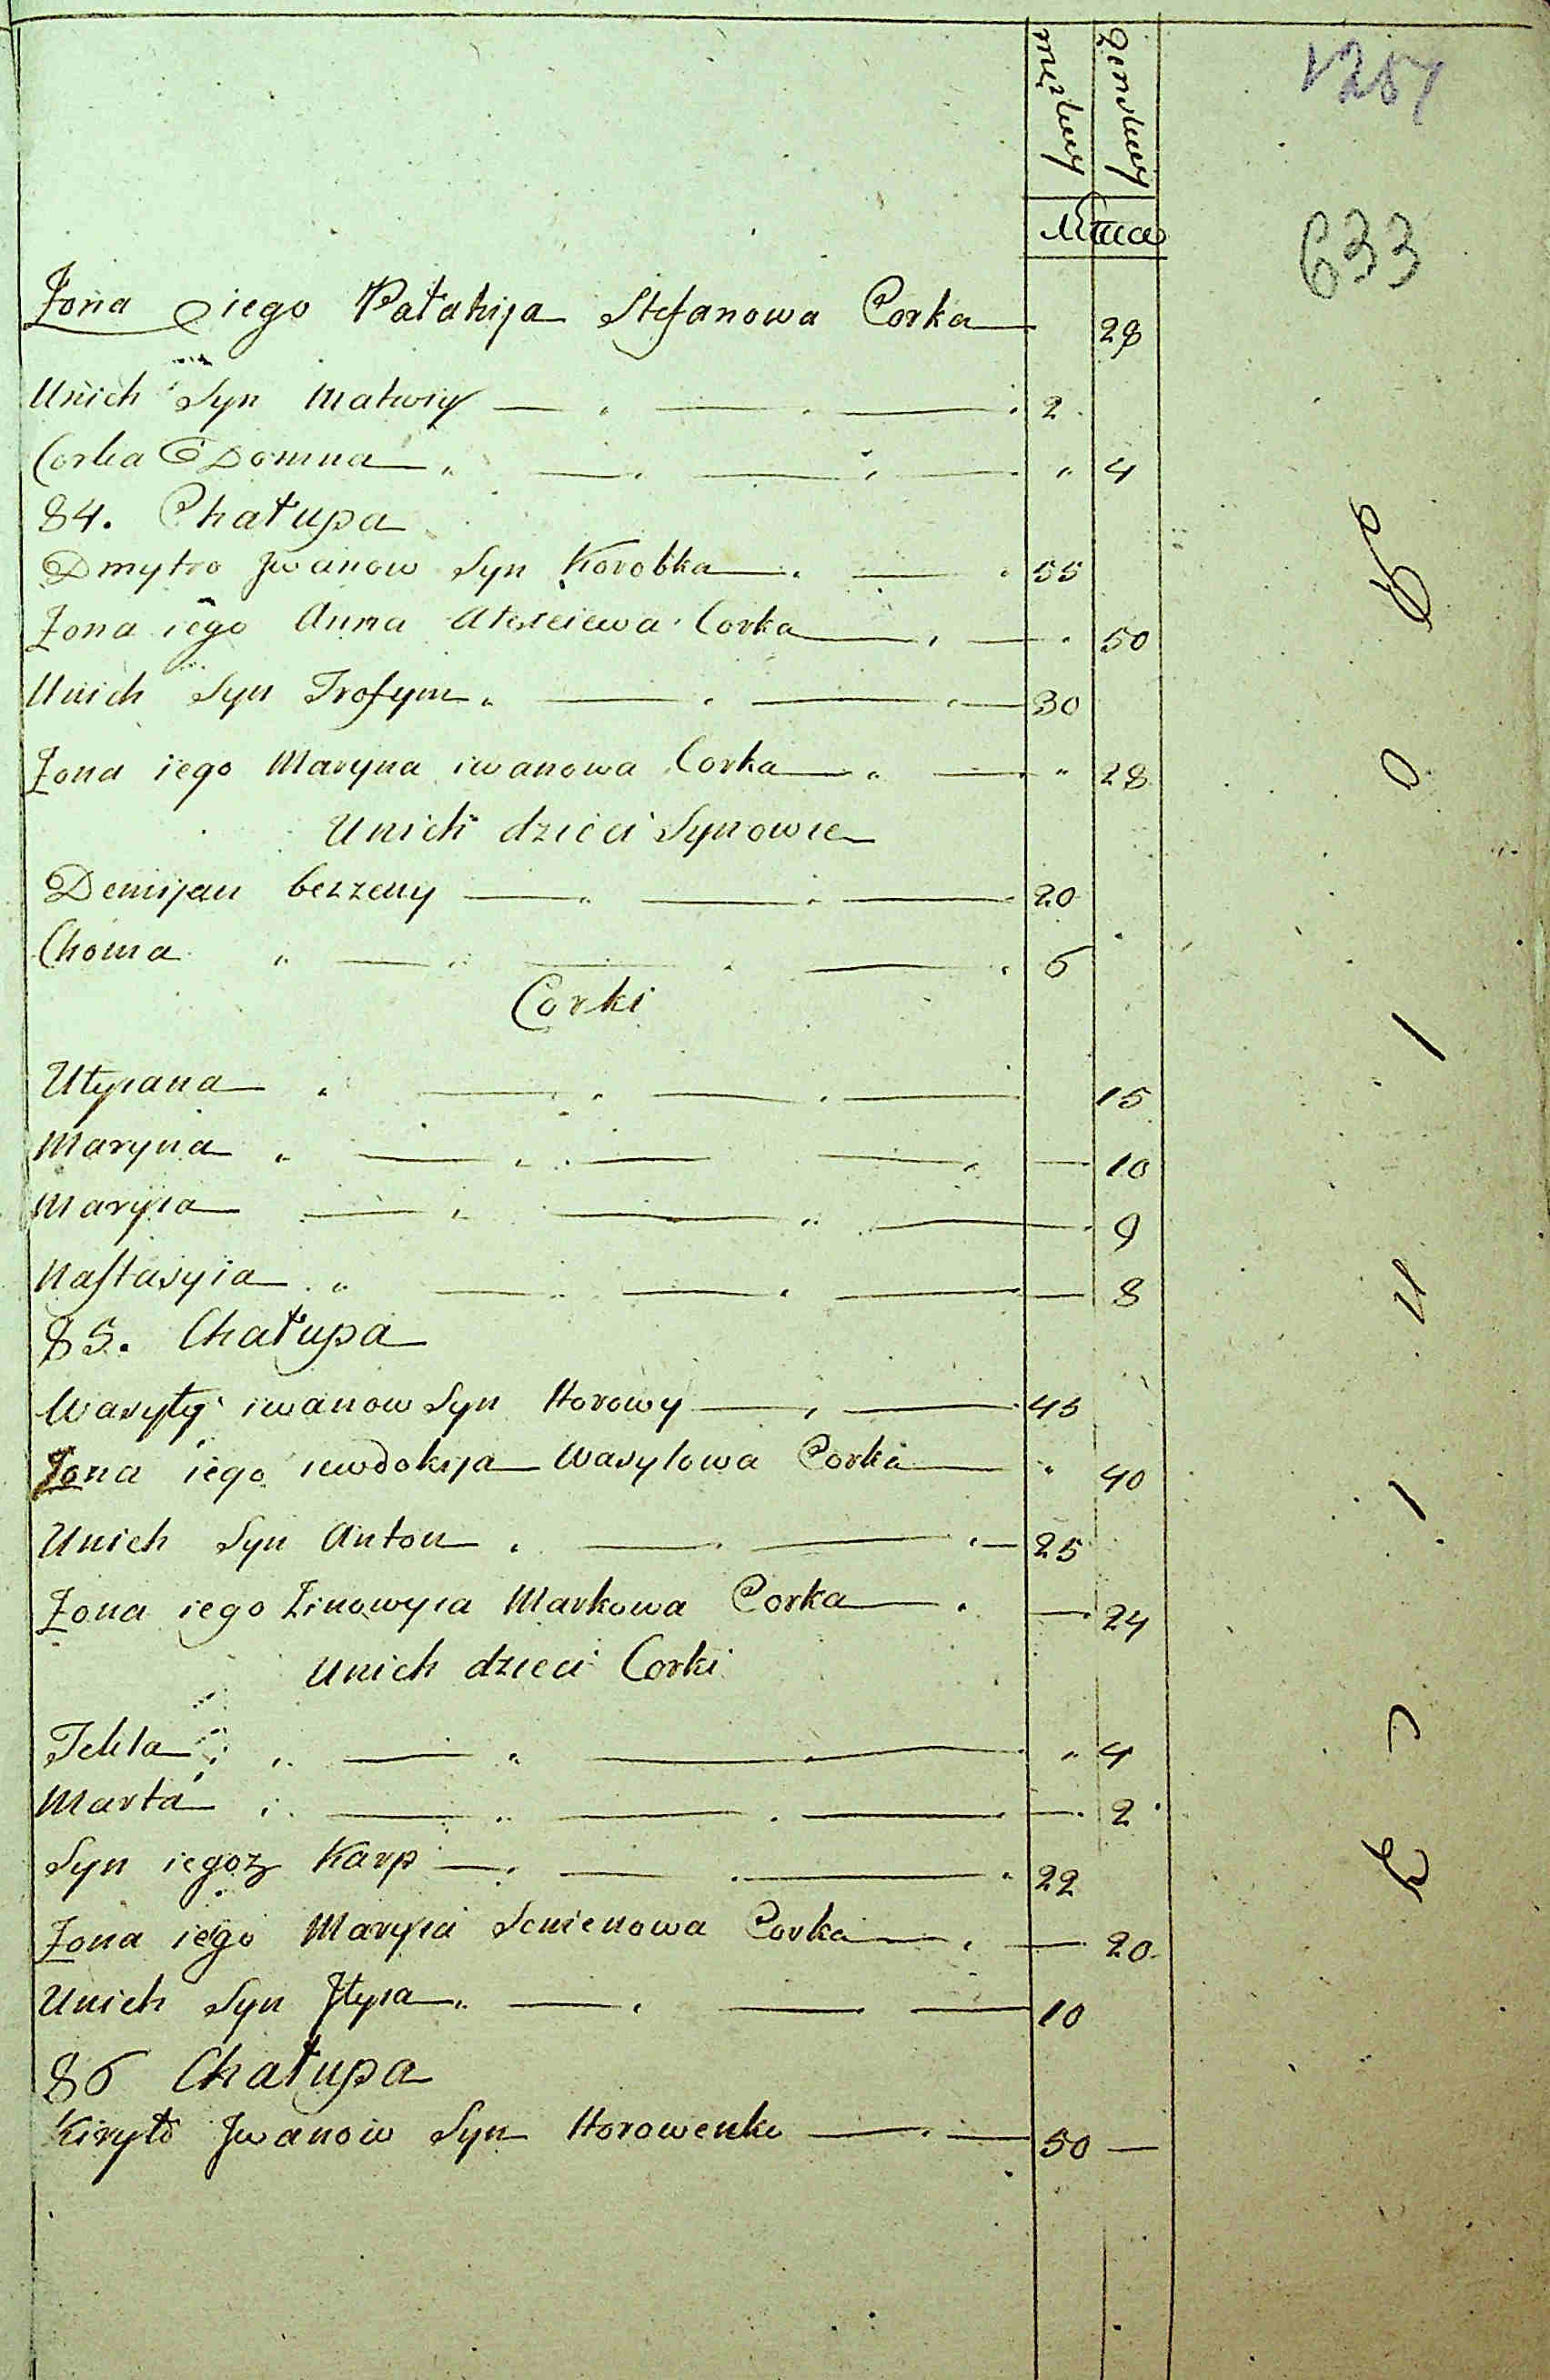 męzkuy żenskuy
Lata
1257
633
Żona iego Pałahija Stefanowa Corka 28
Unich Syn Matwiy 2
Corka Domna 4
84. Chałupa
Dmytro Jwanow Syn Korobka 55
Żona iego Anna Corka 50
Unich Syn Trofym 30
Żona iego Maryna iwanowa Corka 28
Unich dzieci Synowie
Demijan bezzeny 20
Choma 6
Corki
Ulyiana 15
Maryna 10
Maryia 9
Nastasyia 8
85. Chałupa
Wasyły iwanow Syn Horowy 45
Żona iego iewdokija Wasylowa Corka 40
Unich Syn Anton 25
Żona iego Zinowyia Markowa Corka 24
Unich dzieci Corki
Tekla 4
Marta 2
Syn iegoz Karp 22
Żona iego Maryia Semenowa Corka 20
Unich Syn Jlyia 10
86 Chałupa
Kiryło Jwanow Syn Horowenko 50